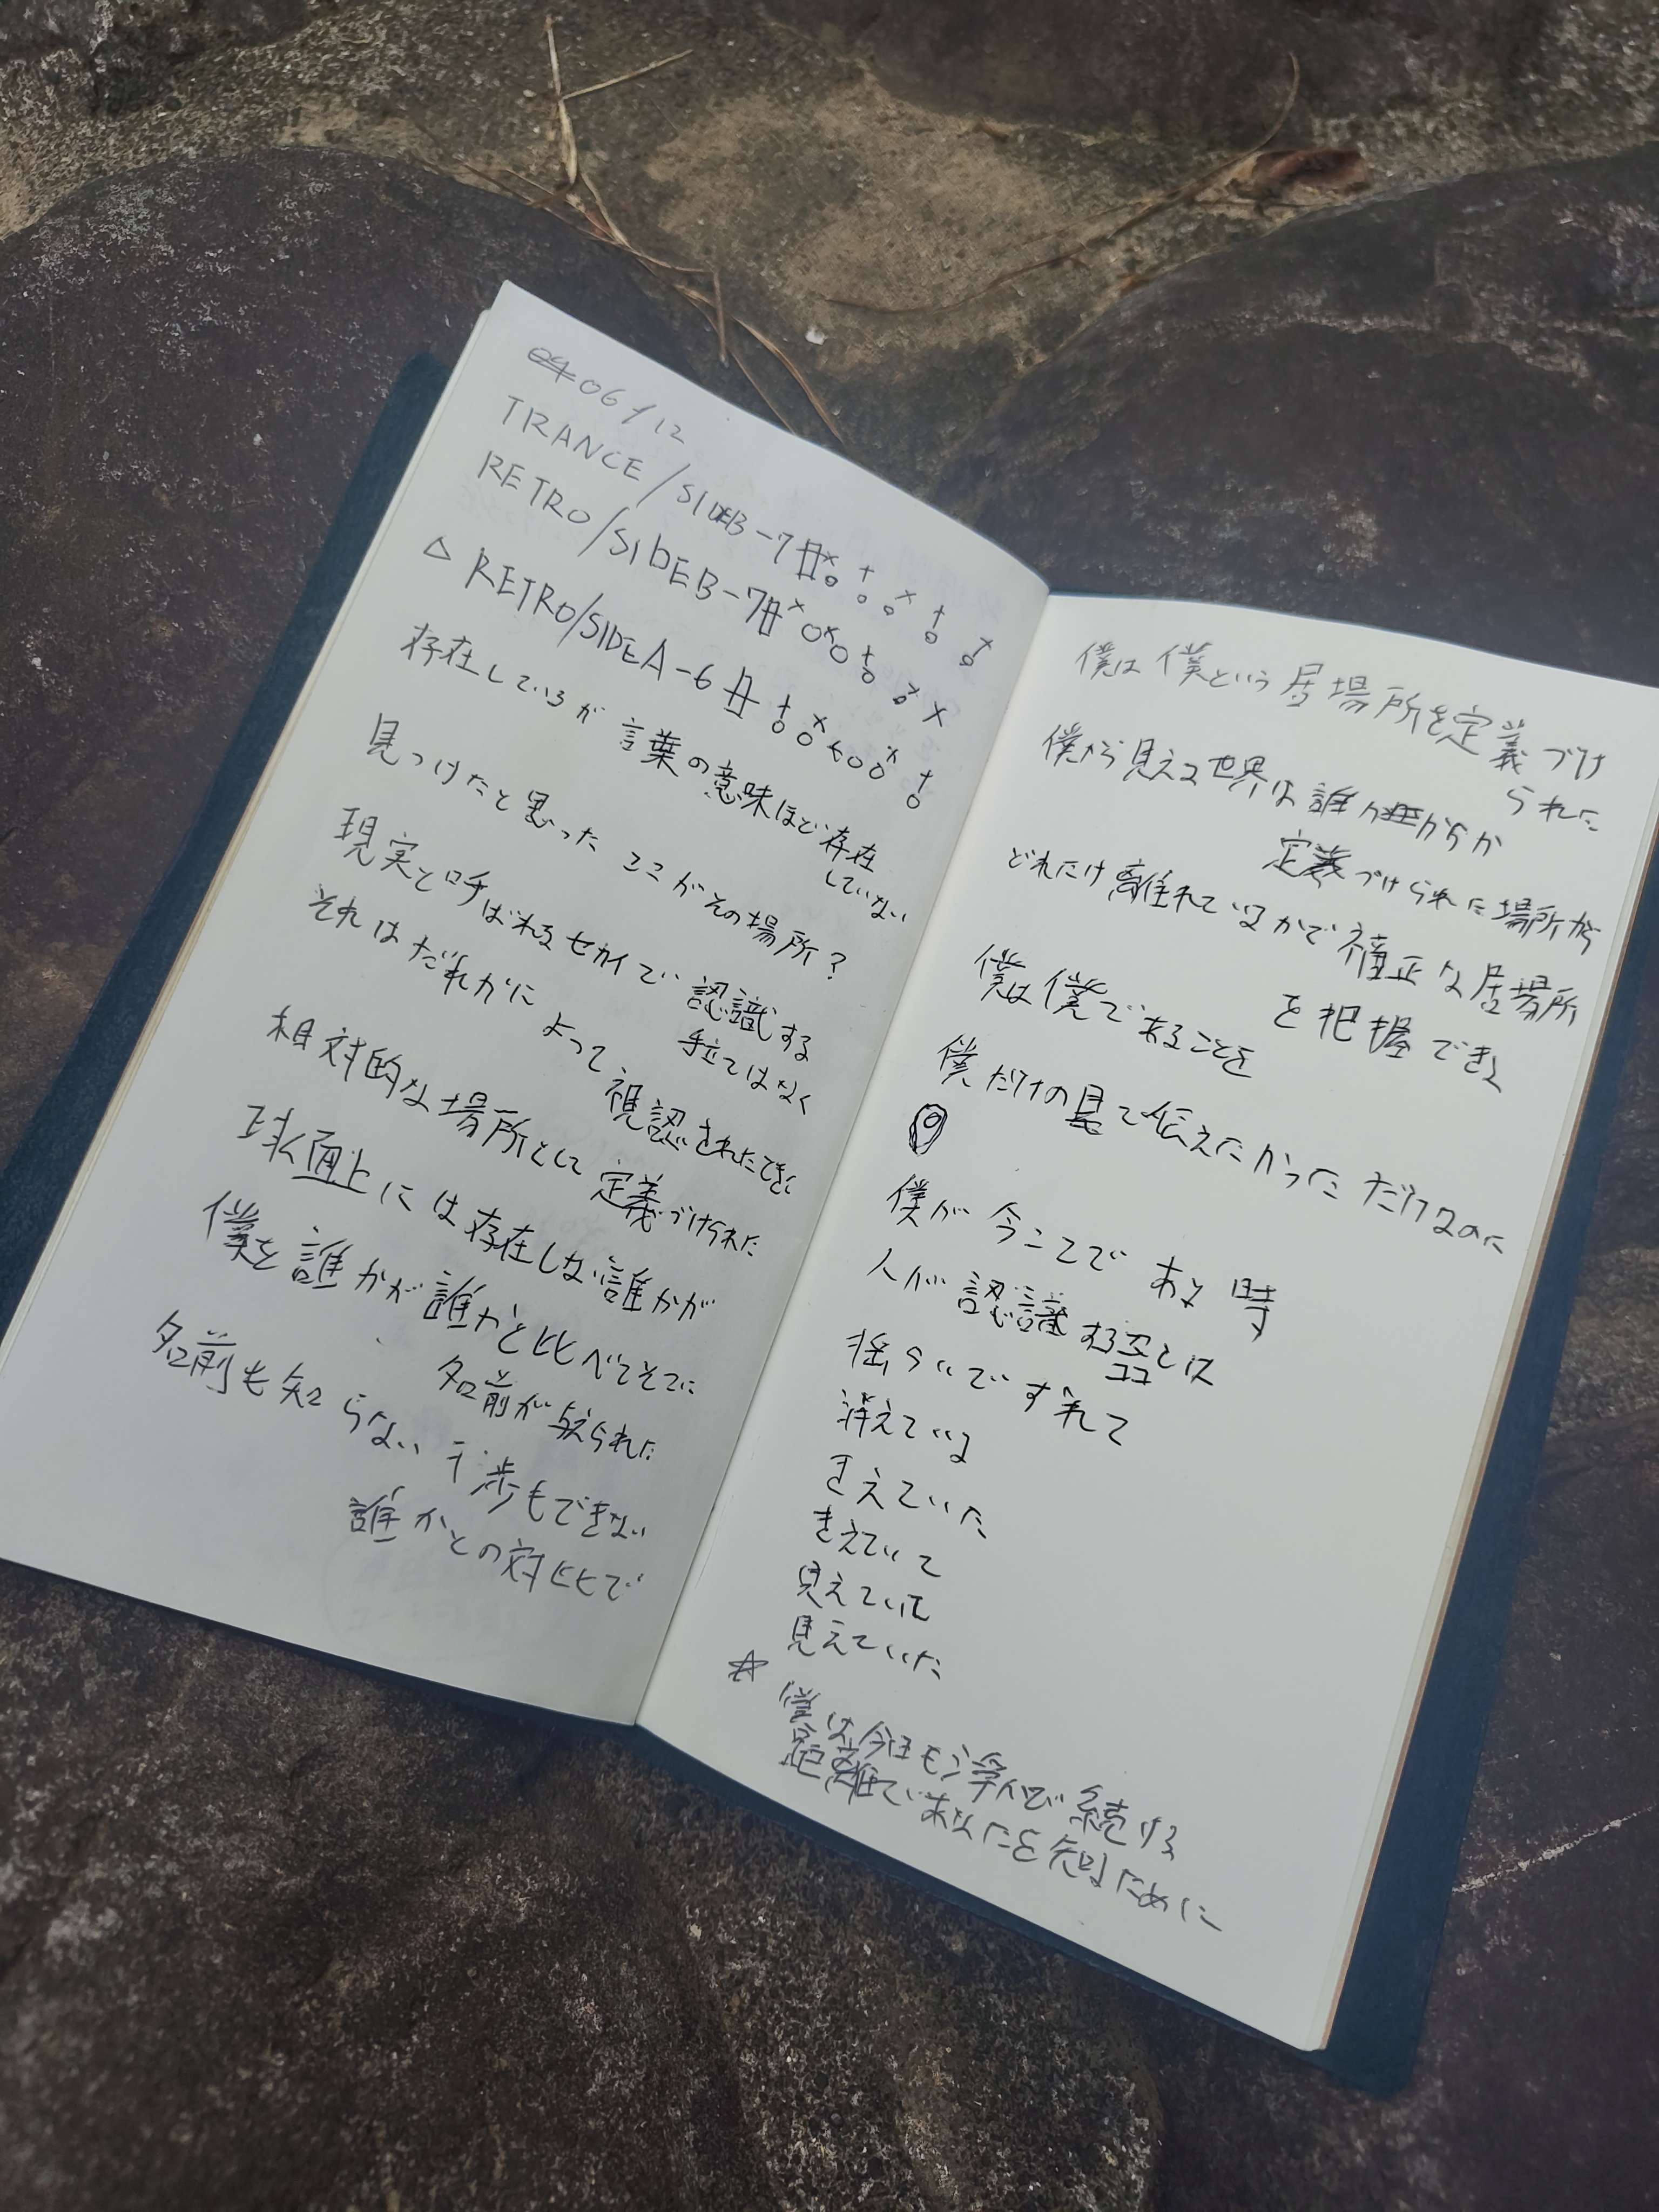 06/12
TRANCE/SIDEB-7
RETRO/SIDEB-7
△ RETRO/SIDEA-6
存在しているが言葉の意味ほど存在
していない
見つけたと思ったココがその場所?
現実と呼ばれるセカイで認識する
手立てはなく
それはだれかによって視認されたてきく
相対的な場所として定義づけられた
球面上には存在しない誰かが
僕を誰かが誰かと比べてそこに
名前が与えられた
名前も知らない干渉もできない
誰かとの対比で
僕は僕という居場所を定義づけ
られた
僕から見える世界は誰かからか
定義づけられた場所から
どれだけ離れているかで補正な居場所
を把握できく
僕は僕であることを
僕だけの見て伝えたかっただけなのに
僕が今ここである時
人が認識するココとは
揺らいでずれて
消えている
きえていた
きえていて
見えていて
見えていた
☆ 僕は今日も浮かび続ける
距離であなたを知るために